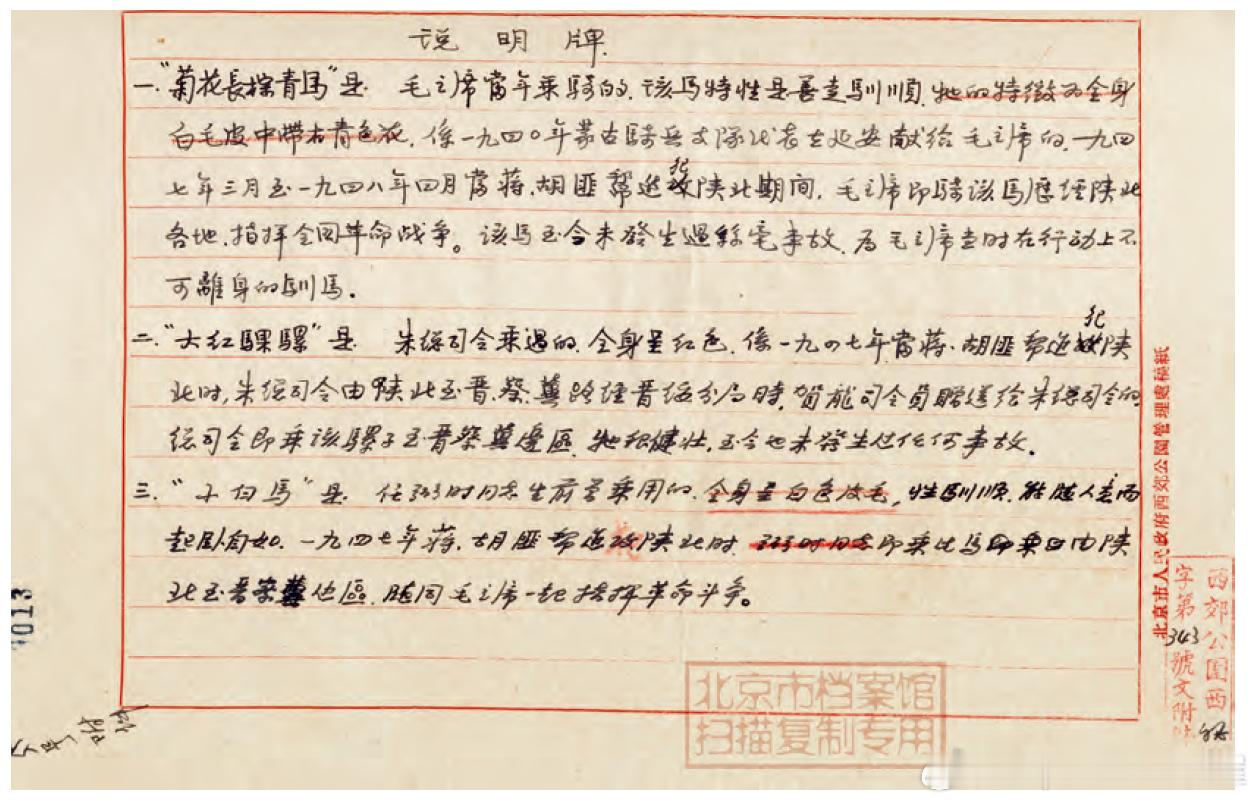 说明牌
一."菊花長棕青馬"是 毛主席當年乘騎的.该馬特性是善走馴順.牠的特徵为全身
白毛皮中帶有青色花.係一九四〇年蒙古騎兵支隊代表在延安献给毛主席的.一九四
七年三月至一九四八年四月當蒋.胡匪幫進攻犯陕北期间.毛主席即騎该馬歷经陕北
各地.指挥全国革命战争。该馬至今未發生過絲毫事故.為毛主席当时在行动上不
可離身的馴馬.
二."大红騾騾"是 朱総司令乘過的.全身呈红色.係一九四七年當蒋.胡匪幫進攻犯陕
北时,朱総司令由陕北至晋.察.冀路经晋绥分局時,贺龍司令員赠送给朱総司令的
総司令即乘该騾子至晋察冀邊區.牠很健壮,至今也未發生过任何事故.
三."小白馬"是 任弼时同志生前呈乘用的.全身呈白色皮毛,性馴順.能随人意而
起卧自如.一九四七年蒋.胡匪幫進攻犯陕北时.弼时同志即乘此馬由陕
北至晋察冀地區.随同毛主席一起指挥革命斗争。
北京市人民政府西郊公園管理處稿紙
西郊公園西
字第343號文附件
北京市档案馆
扫描复制专用
013